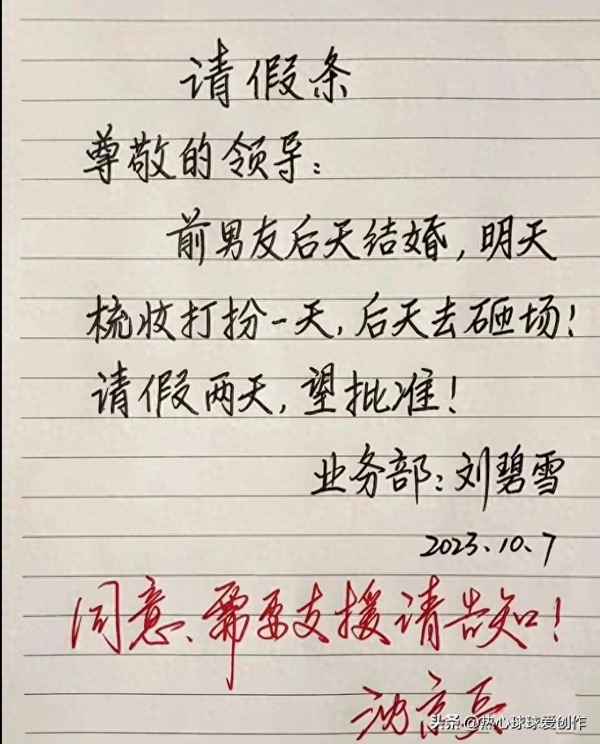 请假条
尊敬的领导：
前男友后天结婚，明天
梳妆打扮一天，后天去砸场！
请假两天，望批准！
业务部：刘碧雪
2023.10.7
同意、需要支援请告知！
沈京兵
头条 @热心球球爱创作